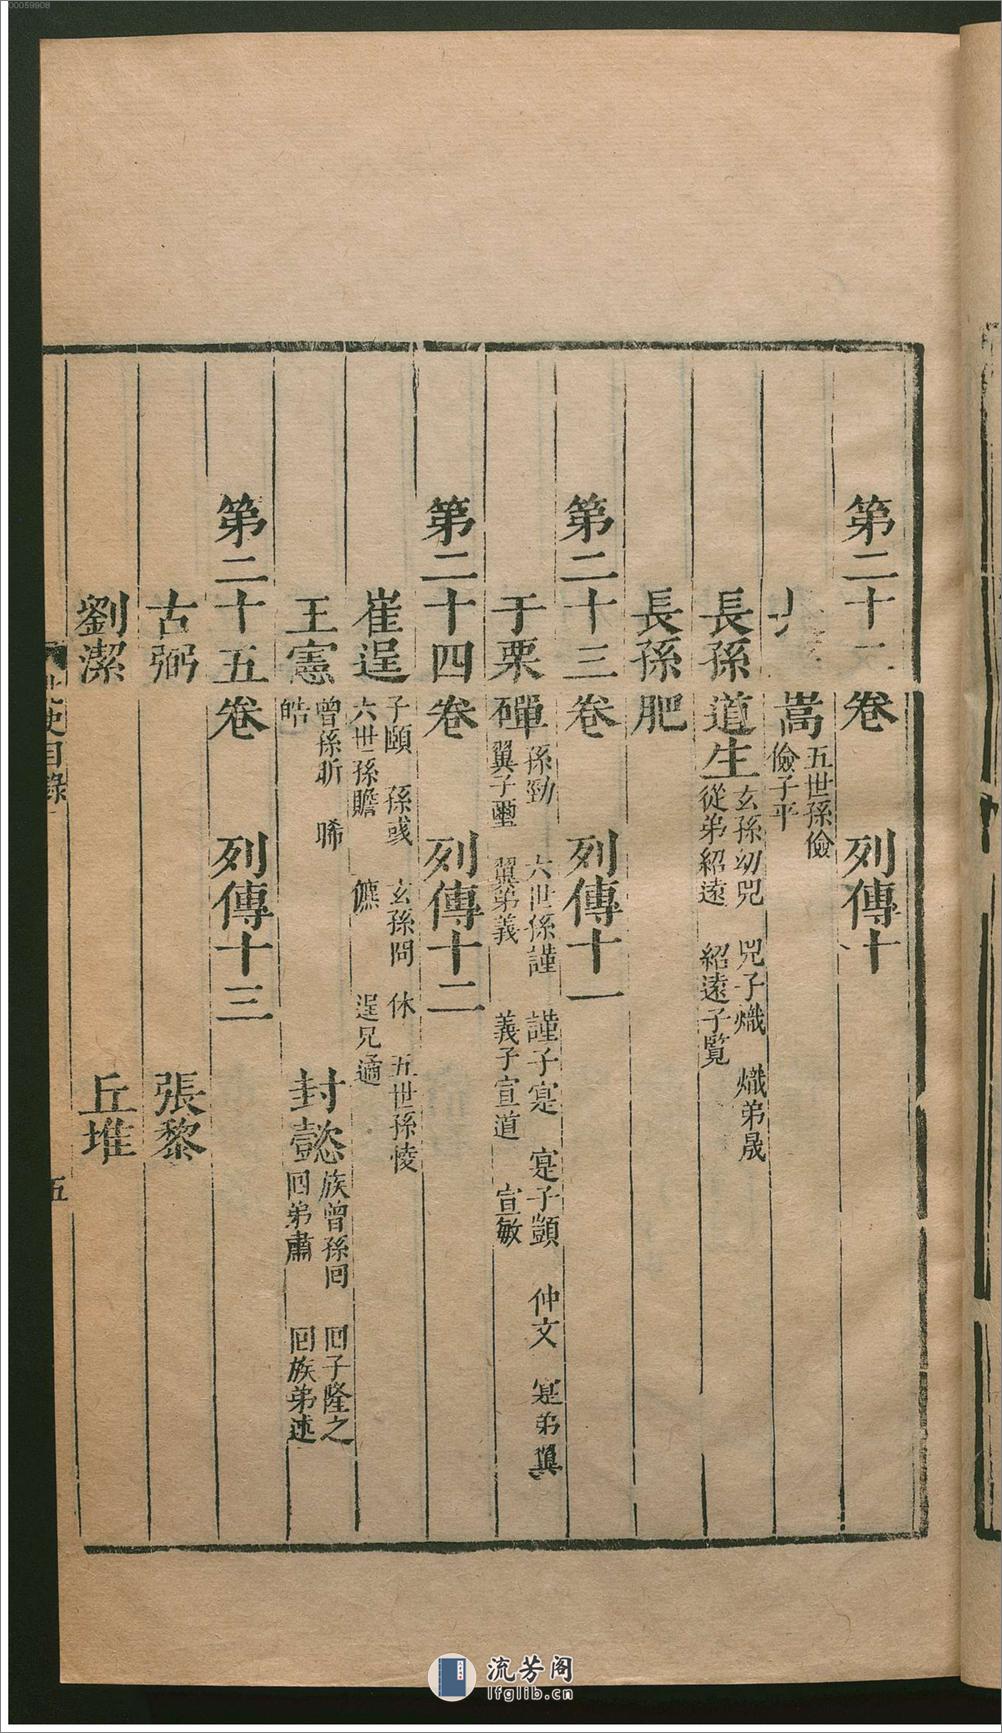 00059908
第二十二卷 列傳十
嵩 五世孫儉 儉子平
長孫道生 玄孫幼 兕 兕子熾 熾弟晟 從弟紹遠 紹遠子覽
長孫肥
第二十三卷 列傳十一
于栗磾 孫勁 六世孫謹 謹子寔 寔子顗 仲文 寔弟翼 翼子璽 翼弟義 義子宣道 宣敏
第二十四卷 列傳十二
崔逞 子頤 孫彧 玄孫問 休 五世孫㥄 六世孫瞻 儦 逞兄遹
王憲 曾孫昕 晞 皓 封懿 族曾孫回 回子隆之 回弟肅 回族弟述
第二十五卷 列傳十三
古弼 張黎
劉潔 丘堆
史目錄 五
流芳阁
lfglib.cn